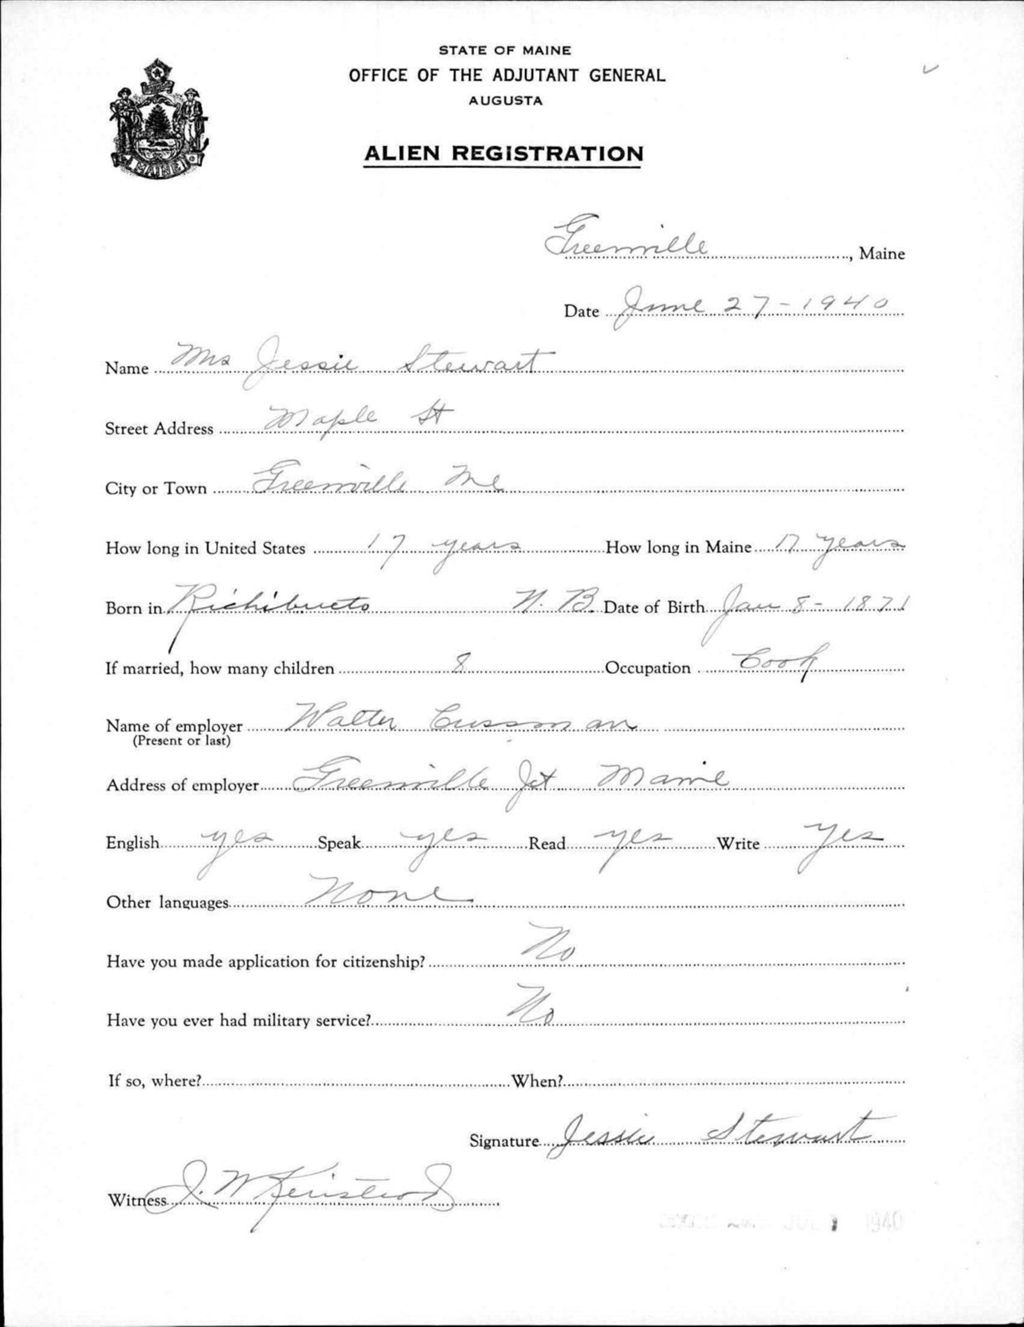 STATE OF MAINE
OFFICE OF THE ADJUTANT GENERAL
AUGUSTA
ALIEN REGISTRATION
MAINE
Greenville, Maine
Date June 27-1940
Name Mrs Jessie Stewart
Street Address Maple St
City or Town Greenville Me
How long in United States 17 years How long in Maine 17 years
Born in Richibucto N. B. Date of Birth Jan 8- 1871
If married, how many children 8 Occupation Cook
Name of employer Walter Cussman
(Present or last)
Address of employer Greenville Jct Maine
English yes Speak yes Read yes Write yes
Other languages None
Have you made application for citizenship? No
Have you ever had military service? No
If so, where? When?
Signature Jessie Stewart
Witness J. W.
1940